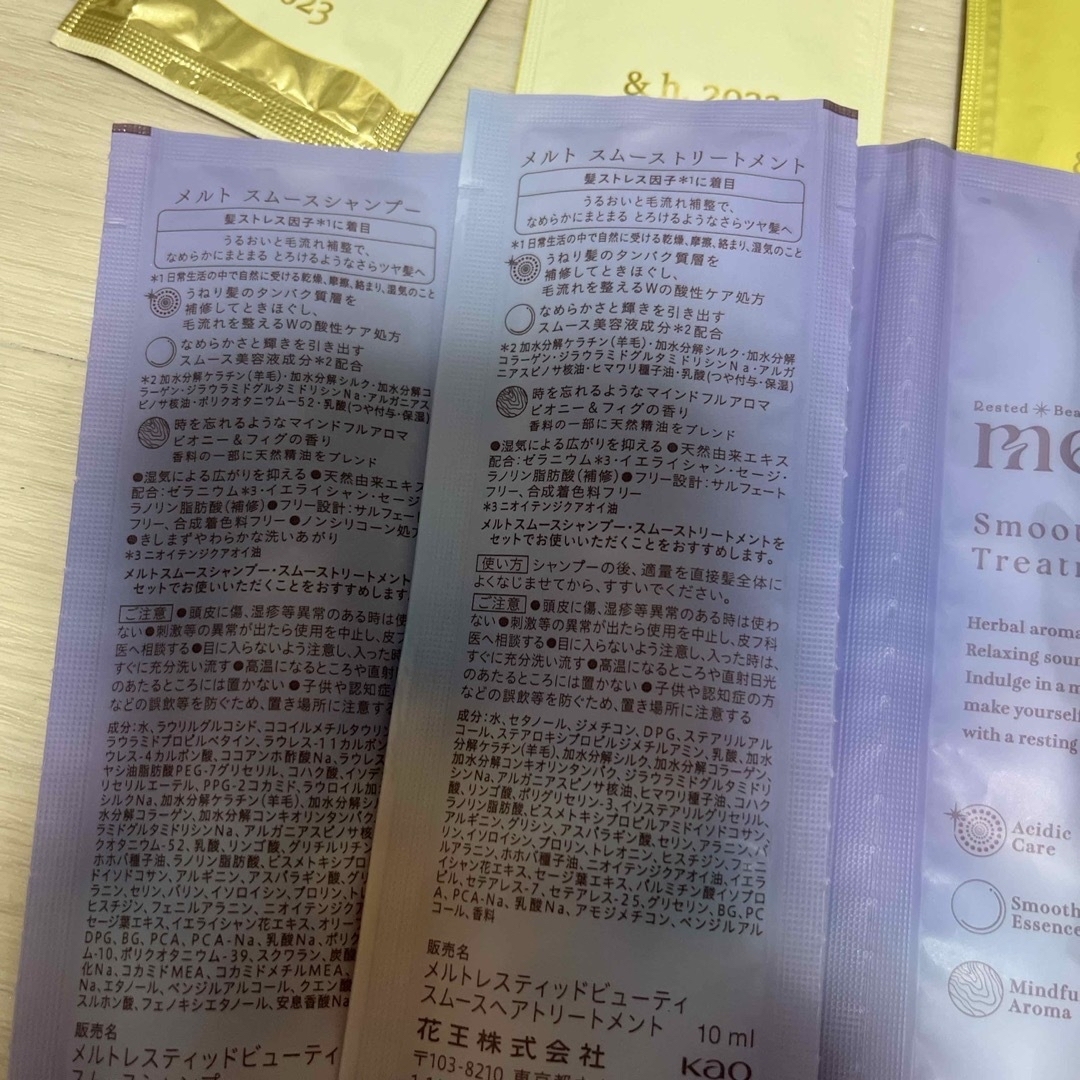 2023
& h. 2023
メルト スムースシャンプー
髪ストレス因子*1に着目
うるおいと毛流れ補整で、
なめらかにまとまる とろけるようなさらツヤ髪へ
*1日常生活の中で自然に受ける乾燥、摩擦、絡まり、湿気のこと
うねり髪のタンパク質層を
補修してときほぐし、
毛流れを整えるWの酸性ケア処方
なめらかさと輝きを引き出す
スムース美容液成分*2配合
*2 加水分解ケラチン(羊毛)・加水分解シルク・加水分解コ
ラーゲン・ジラウラミドグルタミドリシンNa・アルガニアス
ピノサ核油・ポリクオタニウム-52・乳酸(つや付与・保湿)
時を忘れるようなマインドフルアロマ
ピオニー&フィグの香り
香料の一部に天然精油をブレンド
●湿気による広がりを抑える ●天然由来エキス
配合:ゼラニウム*3・イエライシャン・セージ・
ラノリン脂肪酸(補修) ●フリー設計:サルフェート
フリー、合成着色料フリー ●ノンシリコーン処方
●きしまずやわらかな洗いあがり
*3 ニオイテンジクアオイ油
メルトスムースシャンプー・スムーストリートメント
セットでお使いいただくことをおすすめします
ご注意 ●頭皮に傷、湿疹等異常のある時は使わ
ない ●刺激等の異常が出たら使用を中止し、皮フ
医へ相談する ●目に入らないよう注意し、入った
すぐに充分洗い流す ●高温になるところや直射
のあたるところには置かない ●子供や認知症
などの誤飲等を防ぐため、置き場所に注意する
成分:水、ラウリルグルコシド、ココイルメチルタウリン
ラウラミドプロピルベタイン、ラウレス-11カルボン
ウレス-4カルボン酸、ココアンホ酢酸Na、ラウレス
ヤシ油脂肪酸PEG-7グリセリル、コハク酸、イソデ
リセリルエーテル、PPG-2コカミド、ラウロイル加
シルクNa、加水分解ケラチン(羊毛)、加水分解シル
水分解コラーゲン、加水分解コンキオリンタンパク
ラミドグルタミドリシンNa、アルガニアスピノサ核
クオタニウム-52、乳酸、リンゴ酸、グリチルリチン
ホホバ種子油、ラノリン脂肪酸、ビスメトキシプロ
ドイソドコサン、アルギニン、アスパラギン酸、グリ
ラニン、セリン、バリン、イソロイシン、プロリン、トレ
ヒスチジン、フェニルアラニン、ニオイテンジクア
セージ葉エキス、イエライシャン花エキス、オリー
DPG、BG、PCA、PCA-Na、乳酸Na、ポリク
ム-10、ポリクオタニウム-39、スクワラン、炭酸
化Na、コカミドMEA、コカミドメチルMEA、
Na、エタノール、ベンジルアルコール、クエン酸
スルホン酸、フェノキシエタノール、安息香酸Na
販売名
メルトレスティッドビューティ
スムースシャンプ
メルト スムーストリートメント
髪ストレス因子*1に着目
うるおいと毛流れ補整で、
なめらかにまとまる とろけるようなさらツヤ髪へ
*1日常生活の中で自然に受ける乾燥、摩擦、絡まり、湿気のこと
うねり髪のタンパク質層を
補修してときほぐし、
毛流れを整えるWの酸性ケア処方
なめらかさと輝きを引き出す
スムース美容液成分*2配合
*2 加水分解ケラチン(羊毛)・加水分解シルク・加水分解
コラーゲン・ジラウラミドグルタミドリシンNa・アルガ
ニアスピノサ核油・ヒマワリ種子油・乳酸(つや付与・保湿)
時を忘れるようなマインドフルアロマ
ピオニー&フィグの香り
香料の一部に天然精油をブレンド
●湿気による広がりを抑える ●天然由来エキス
配合:ゼラニウム*3・イエライシャン・セージ・
ラノリン脂肪酸(補修) ●フリー設計:サルフェート
フリー、合成着色料フリー
*3 ニオイテンジクアオイ油
メルトスムースシャンプー・スムーストリートメントを
セットでお使いいただくことをおすすめします。
使い方 シャンプーの後、適量を直接髪全体に
よくなじませてから、すすいでください。
ご注意 ●頭皮に傷、湿疹等異常のある時は使わ
ない ●刺激等の異常が出たら使用を中止し、皮フ科
医へ相談する ●目に入らないよう注意し、入った時は、
すぐに充分洗い流す ●高温になるところや直射日光
のあたるところには置かない ●子供や認知症の方
などの誤飲等を防ぐため、置き場所に注意する
成分:水、セタノール、ジメチコン、DPG、ステアリルアル
コール、ステアロキシプロピルジメチルアミン、乳酸、加水
分解ケラチン(羊毛)、加水分解シルク、加水分解コラーゲン、
加水分解コンキオリンタンパク、ジラウラミドグルタミドリ
シンNa、アルガニアスピノサ核油、ヒマワリ種子油、コハク
酸、リンゴ酸、ポリグリセリン-3、イソステアリルグリセリル、
ラノリン脂肪酸、ビスメトキシプロピルアミドイソドコサン、
アルギニン、グリシン、アスパラギン酸、セリン、アラニン、バ
リン、イソロイシン、プロリン、トレオニン、ヒスチジン、フェニ
ルアラニン、ホホバ種子油、ニオイテンジクアオイ油、イエラ
イシャン花エキス、セージ葉エキス、パルミチン酸イソプロ
ピル、セテアレス-7、セテアレス-25、グリセリン、BG、PC
A、PCA-Na、乳酸Na、アモジメチコン、ベンジルアル
コール、香料
販売名
メルトレスティッドビューティ
スムースヘアトリートメント 10 ml
花王株式会社 Kao
〒103-8210 東京都
Rested Bea
me
Smoo
Treat
Herbal aroma
Relaxing soun
Indulge in a m
make yourself
with a resting
Acidic
Care
Smooth
Essence
Mindfu
Aroma